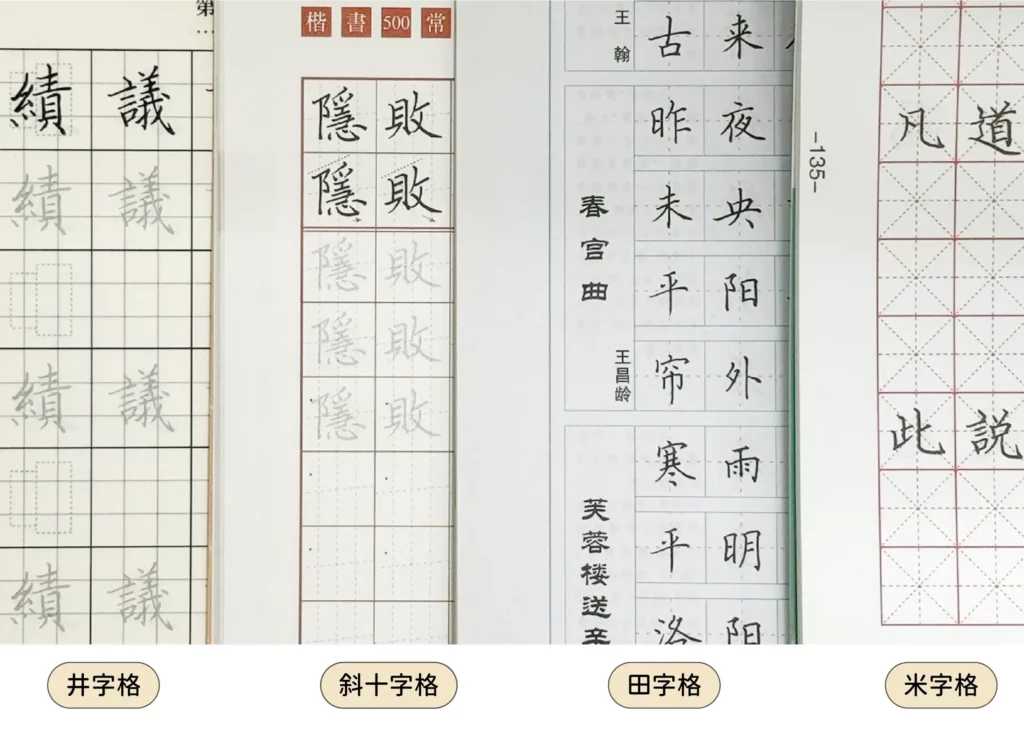 第
績 議
績 議
績 議
績 議
楷書500常
隱 敗
隱 敗
隱 敗
隱 敗
隱 敗
王翰
古 来
春宫曲
王昌龄
昨 夜
未 央
平 阳
帘 外
芙蓉楼送辛
寒 雨
平 明
洛 阳
-135-
凡 道
此 説
井字格
斜十字格
田字格
米字格